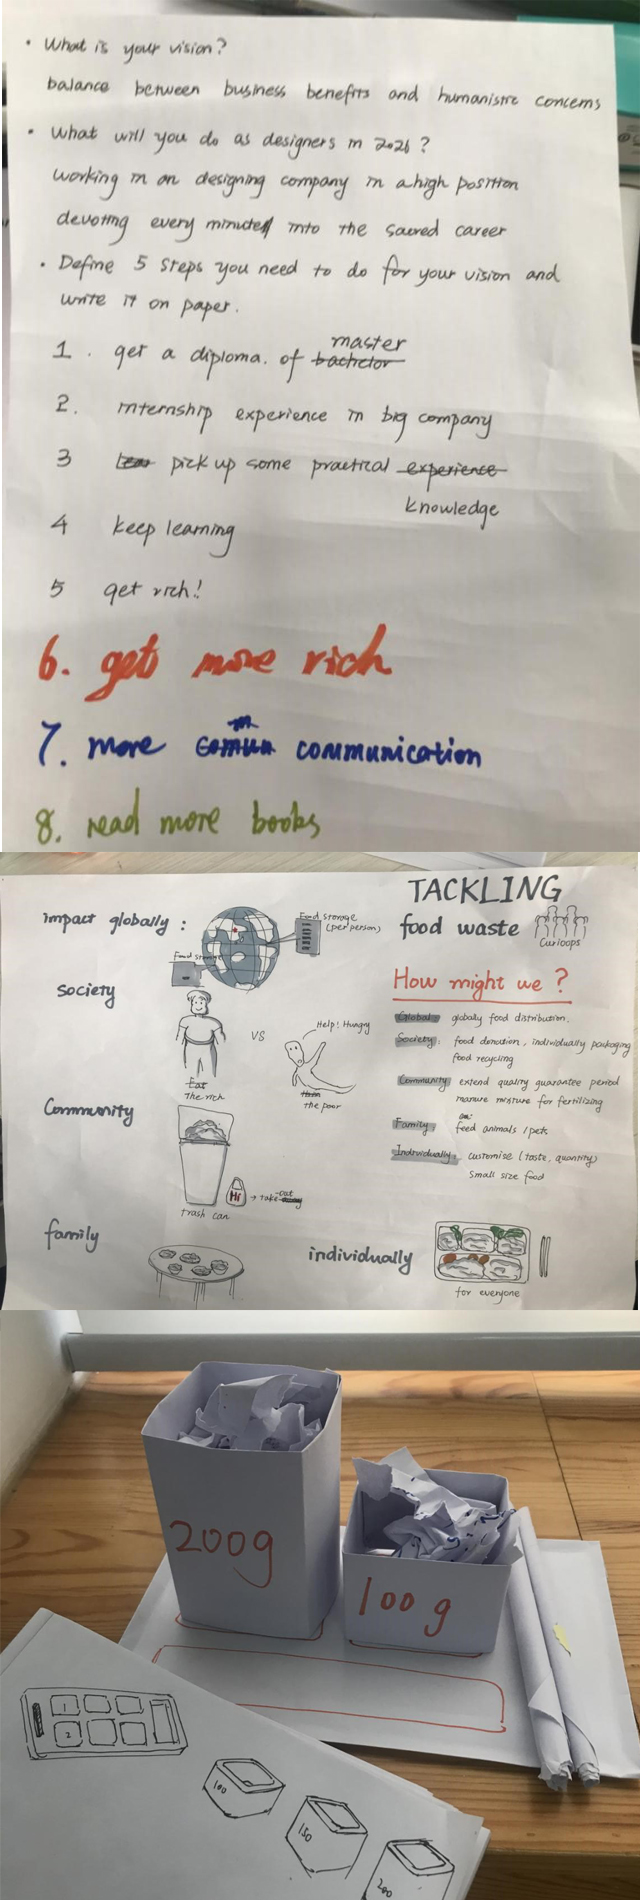 • What is your vision?
balance between business benefits and humanistic concerns
• What will you do as designers in 2026?
Working in an designing company in a high position
devoting every minute into the sacred career
• Define 5 steps you need to do for your vision and
write it on paper.
1. get a diploma. of bachelor master
2. internship experience in big company
3 pick up some practical experience
knowledge
4 keep learning
5 get rich!
6. get more rich
7. more comun communication
8. read more books
TACKLING
food waste
Curloops
impact globally:
Food storage
(per person)
Food storage
Society
VS
Help! Hungry
Eat
The rich
the poor
Community
trash can
Hi
→ take out
family
individually
for everyone
How might we?
Global: globally food distribution.
Society: food donation, individually packaging
food recycling
Community: extend quality guarantee period
manure mixture for fertilizing
Family: feed animals / pets
Individually: customise (taste, quantity)
small size food
200g
100g
1
2
100
150
200